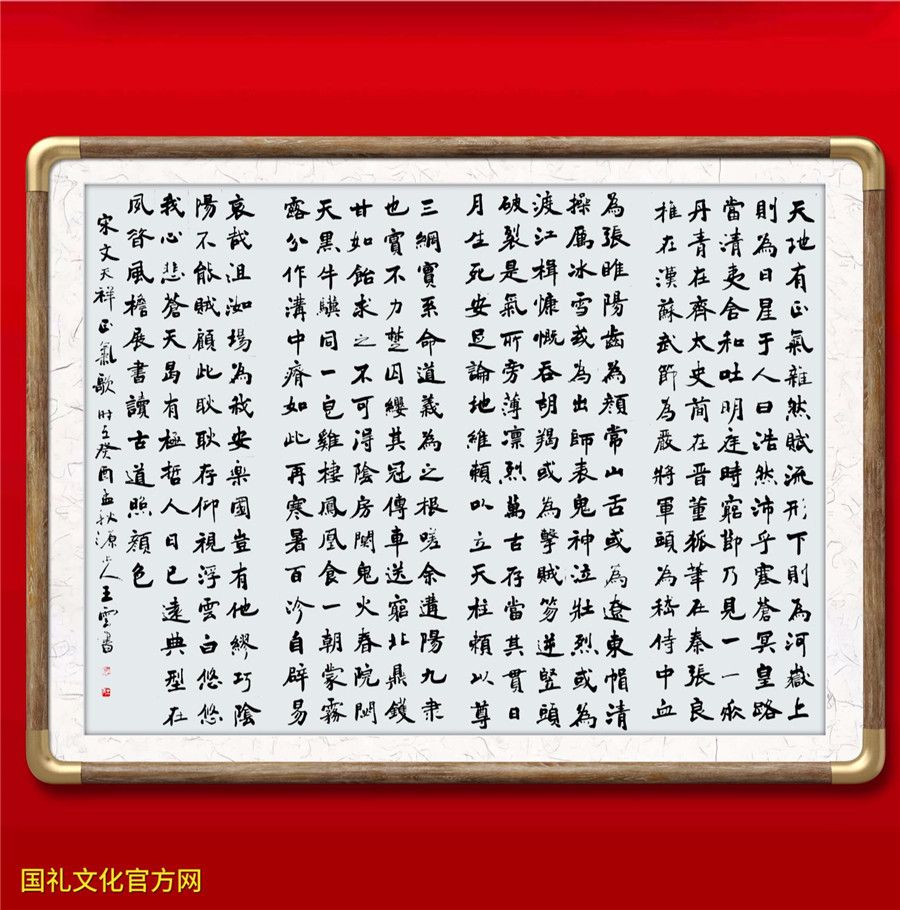 天地有正氣雜然賦流形下則為河嶽上
則為日星于人曰浩然沛乎塞蒼冥皇路
當清夷含和吐明庭時窮節乃見一一垂
丹青在齊太史簡在晉董狐筆在秦張良
椎在漢蘇武節為嚴將軍頭為嵇侍中血
為張睢陽齒為顏常山舌或為遼東帽清
操厲冰雪或為出師表鬼神泣壯烈或為
渡江楫慷慨吞胡羯或為擊賊笏逆豎頭
破裂是氣所旁薄凜烈萬古存當其貫日
月生死安足論地維賴以立天柱賴以尊
三綱實系命道義為之根嗟余遘陽九隶
也實不力楚囚纓其冠傳車送窮北鼎鑊
甘如飴求之不可得陰房闃鬼火春院閟
天黑牛驥同一皂雞棲鳳凰食一朝蒙霧
露分作溝中瘠如此再寒暑百沴自辟易
哀哉沮洳場為我安樂國豈有他繆巧陰
陽不能賊顧此耿耿存仰視浮雲白悠悠
我心悲蒼天曷有極哲人日已遠典型在
夙昔風檐展書讀古道照顏色
宋文天祥正氣歌 时在癸酉孟秋源人王雲書
国礼文化官方网